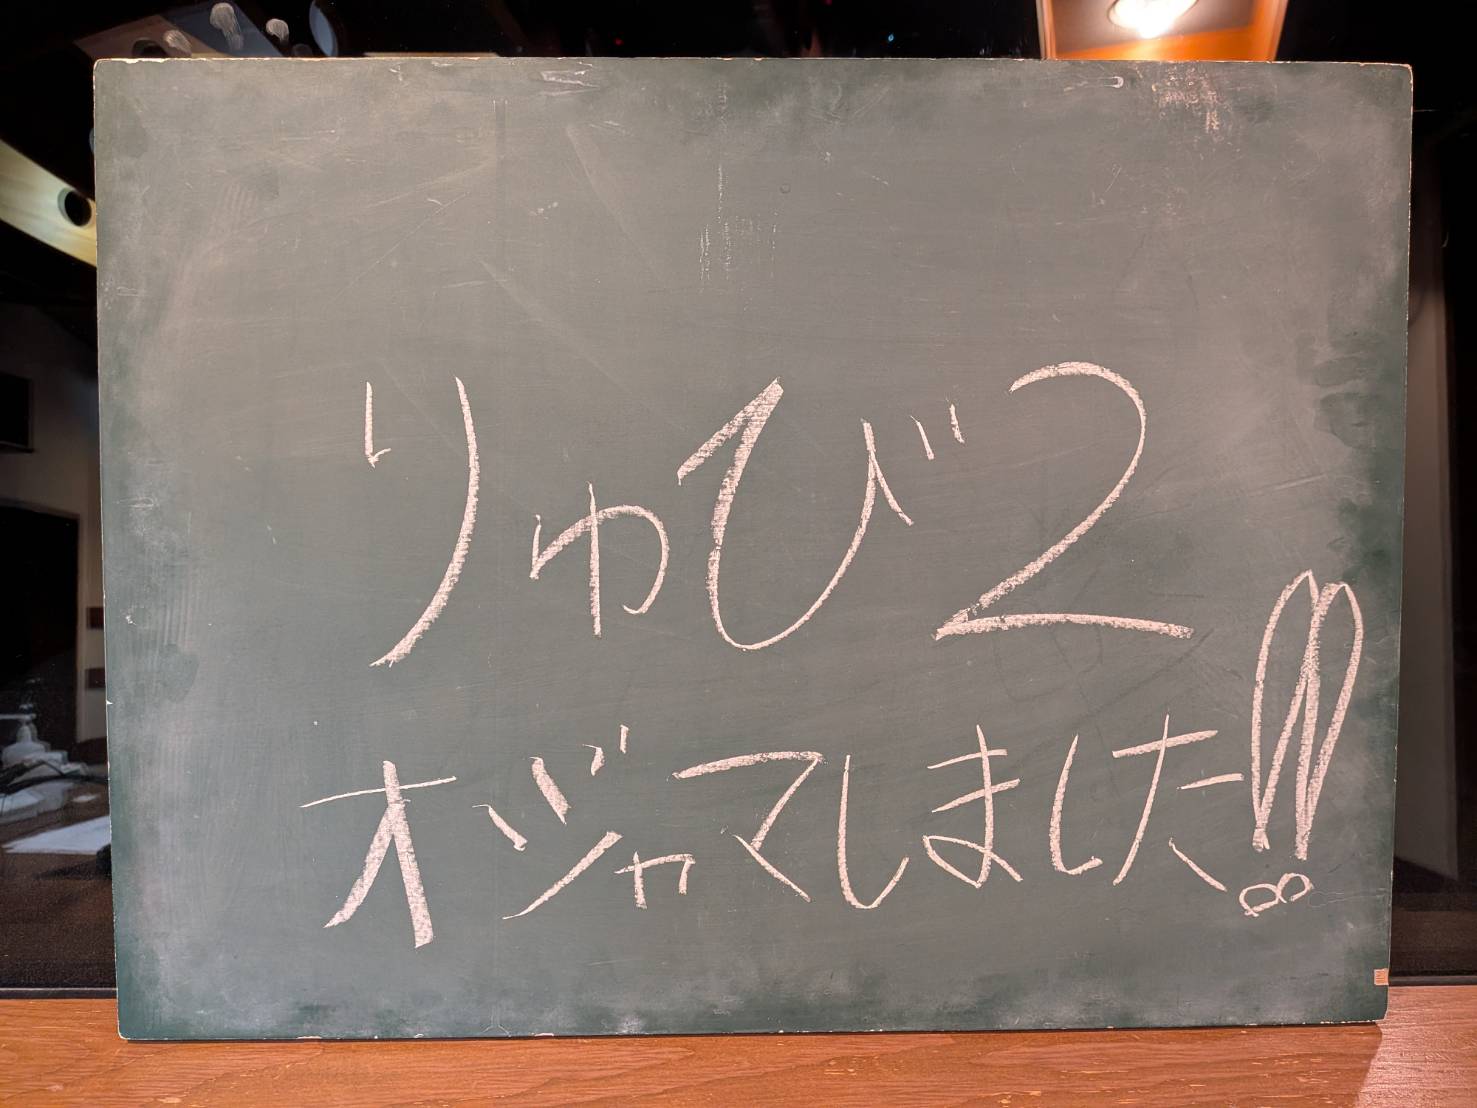 りゅび2
オジャマしました!!